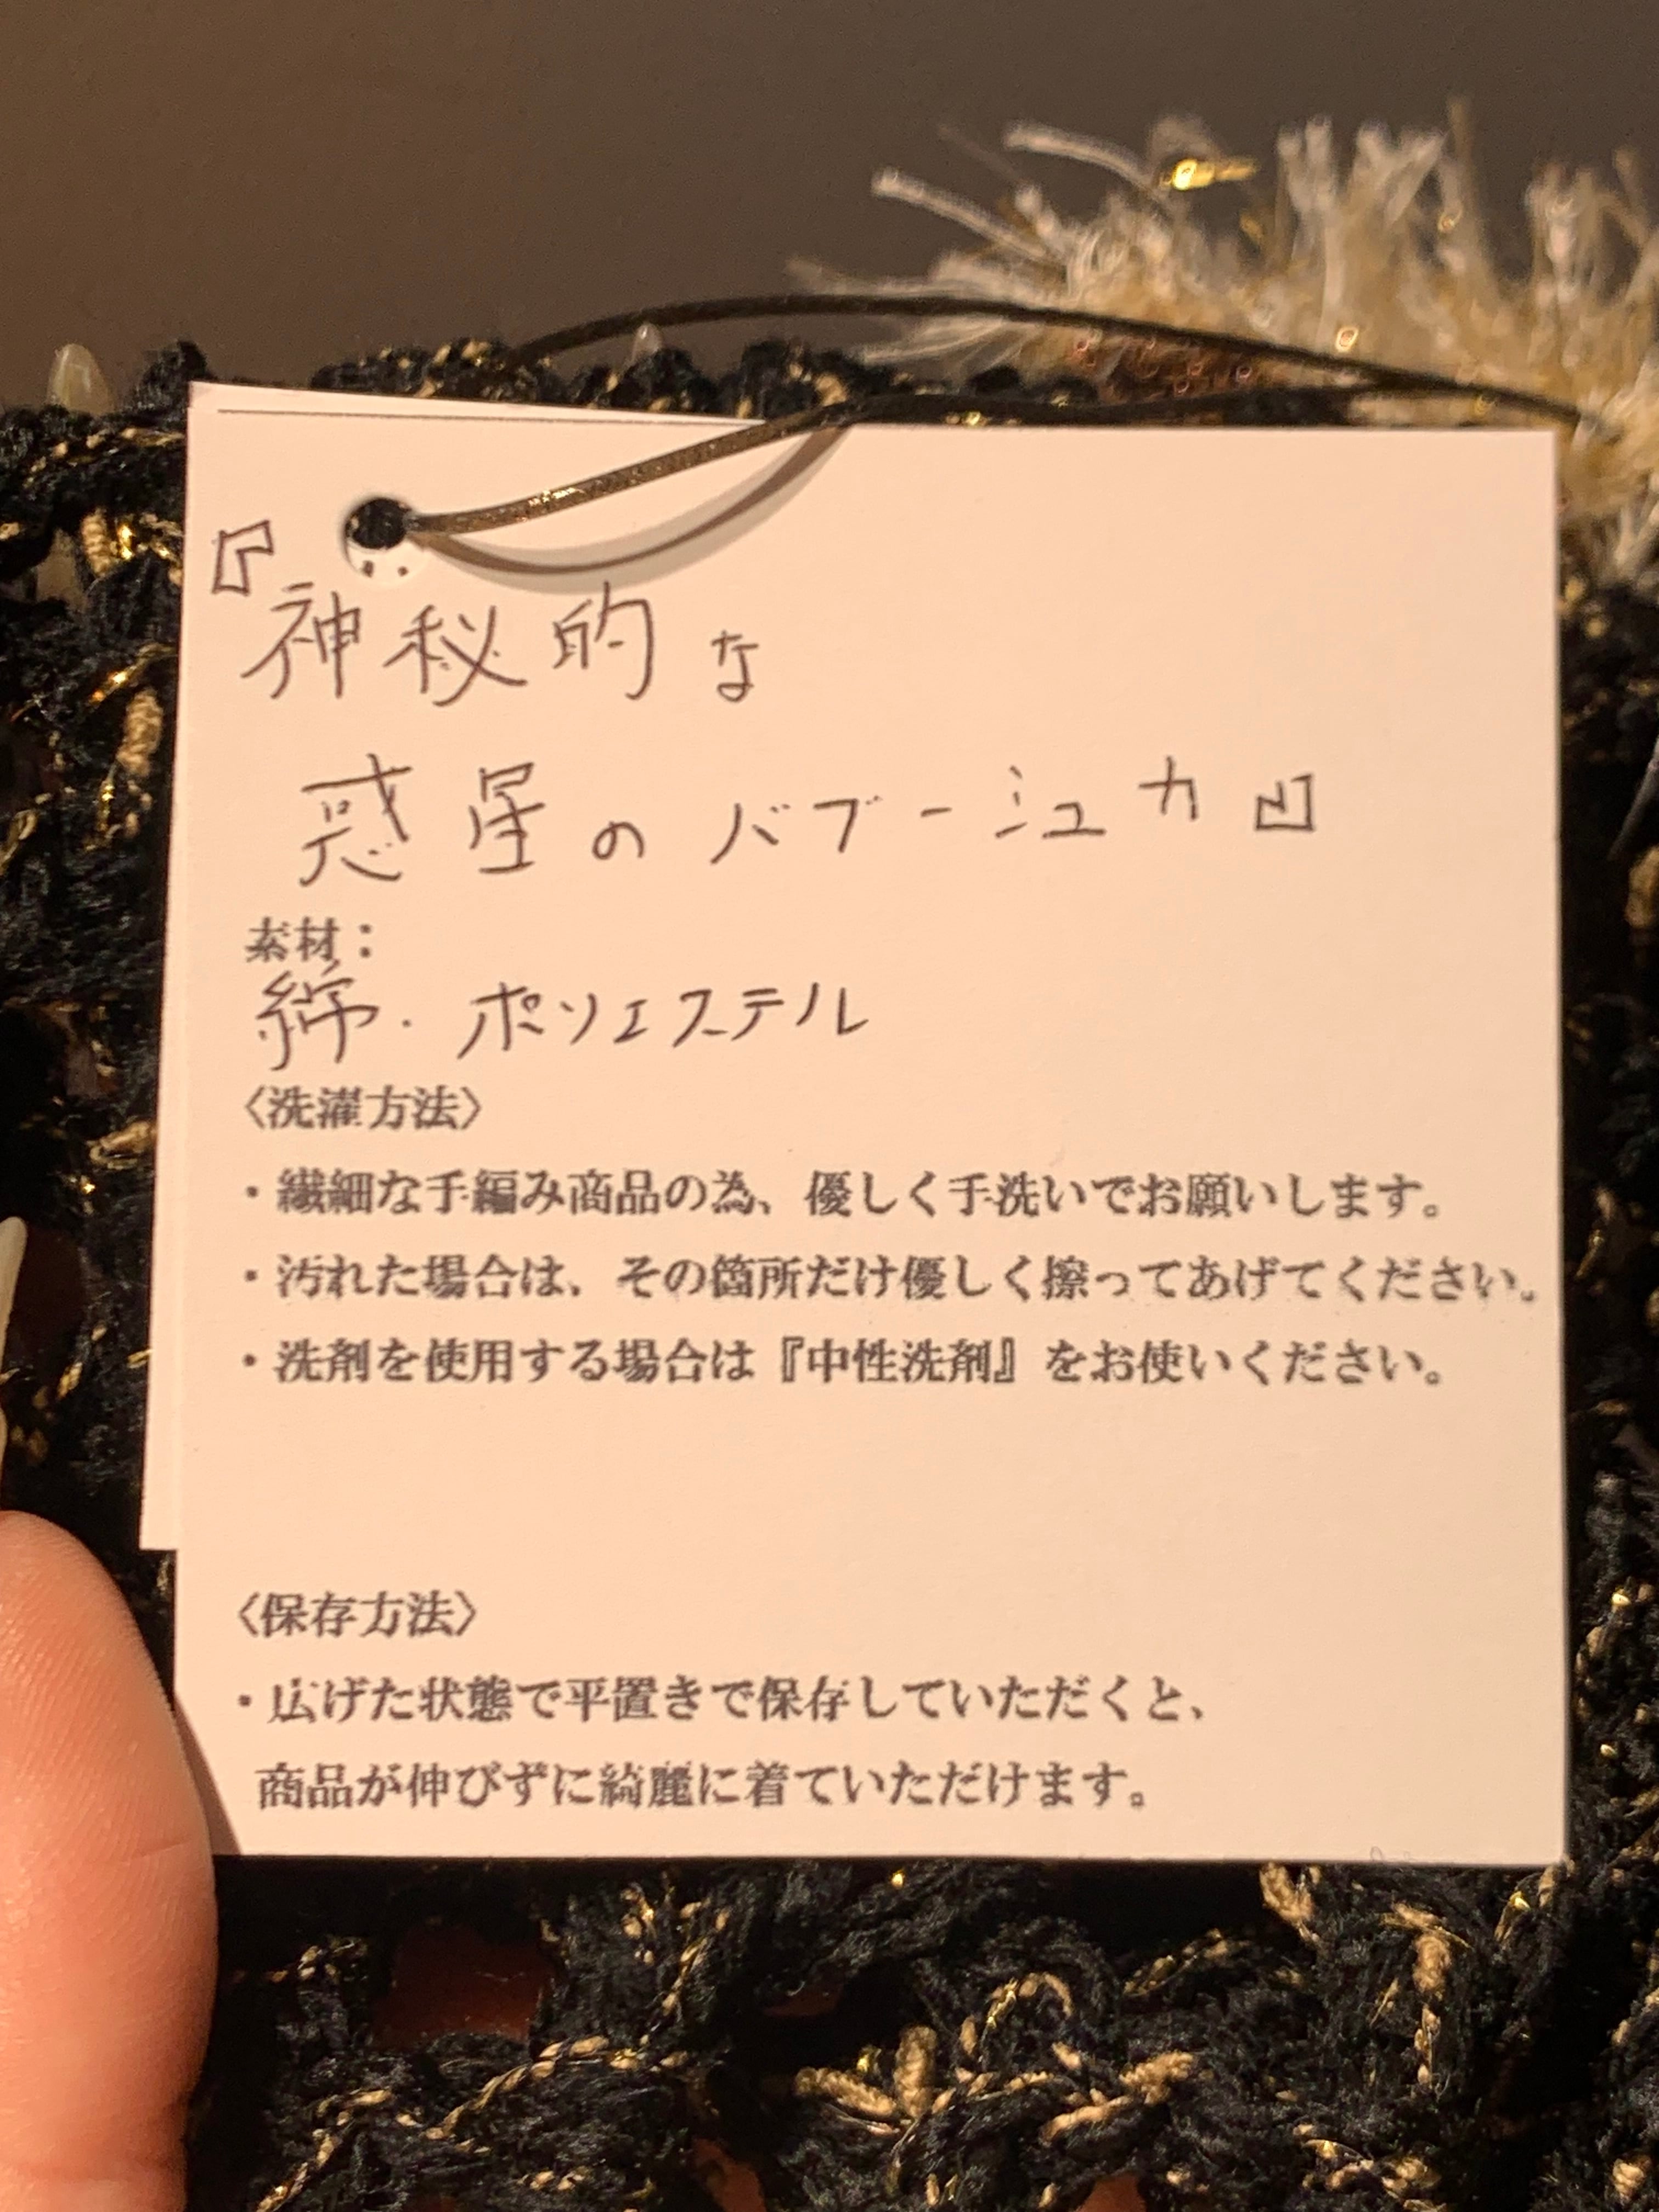 『神秘的な
惑星のバブーシュカ』
素材：
綿・ポリエステル
〈洗濯方法〉
・繊細な手編み商品の為、優しく手洗いでお願いします。
・汚れた場合は、その箇所だけ優しく擦ってあげてください。
・洗剤を使用する場合は『中性洗剤』をお使いください。
〈保存方法〉
・広げた状態で平置きで保存していただくと、
商品が伸びずに綺麗に着ていただけます。